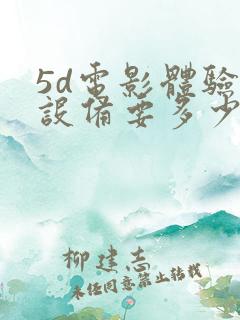 5d電影體驗
設備要多少
柳建志
未經同意禁止轉載